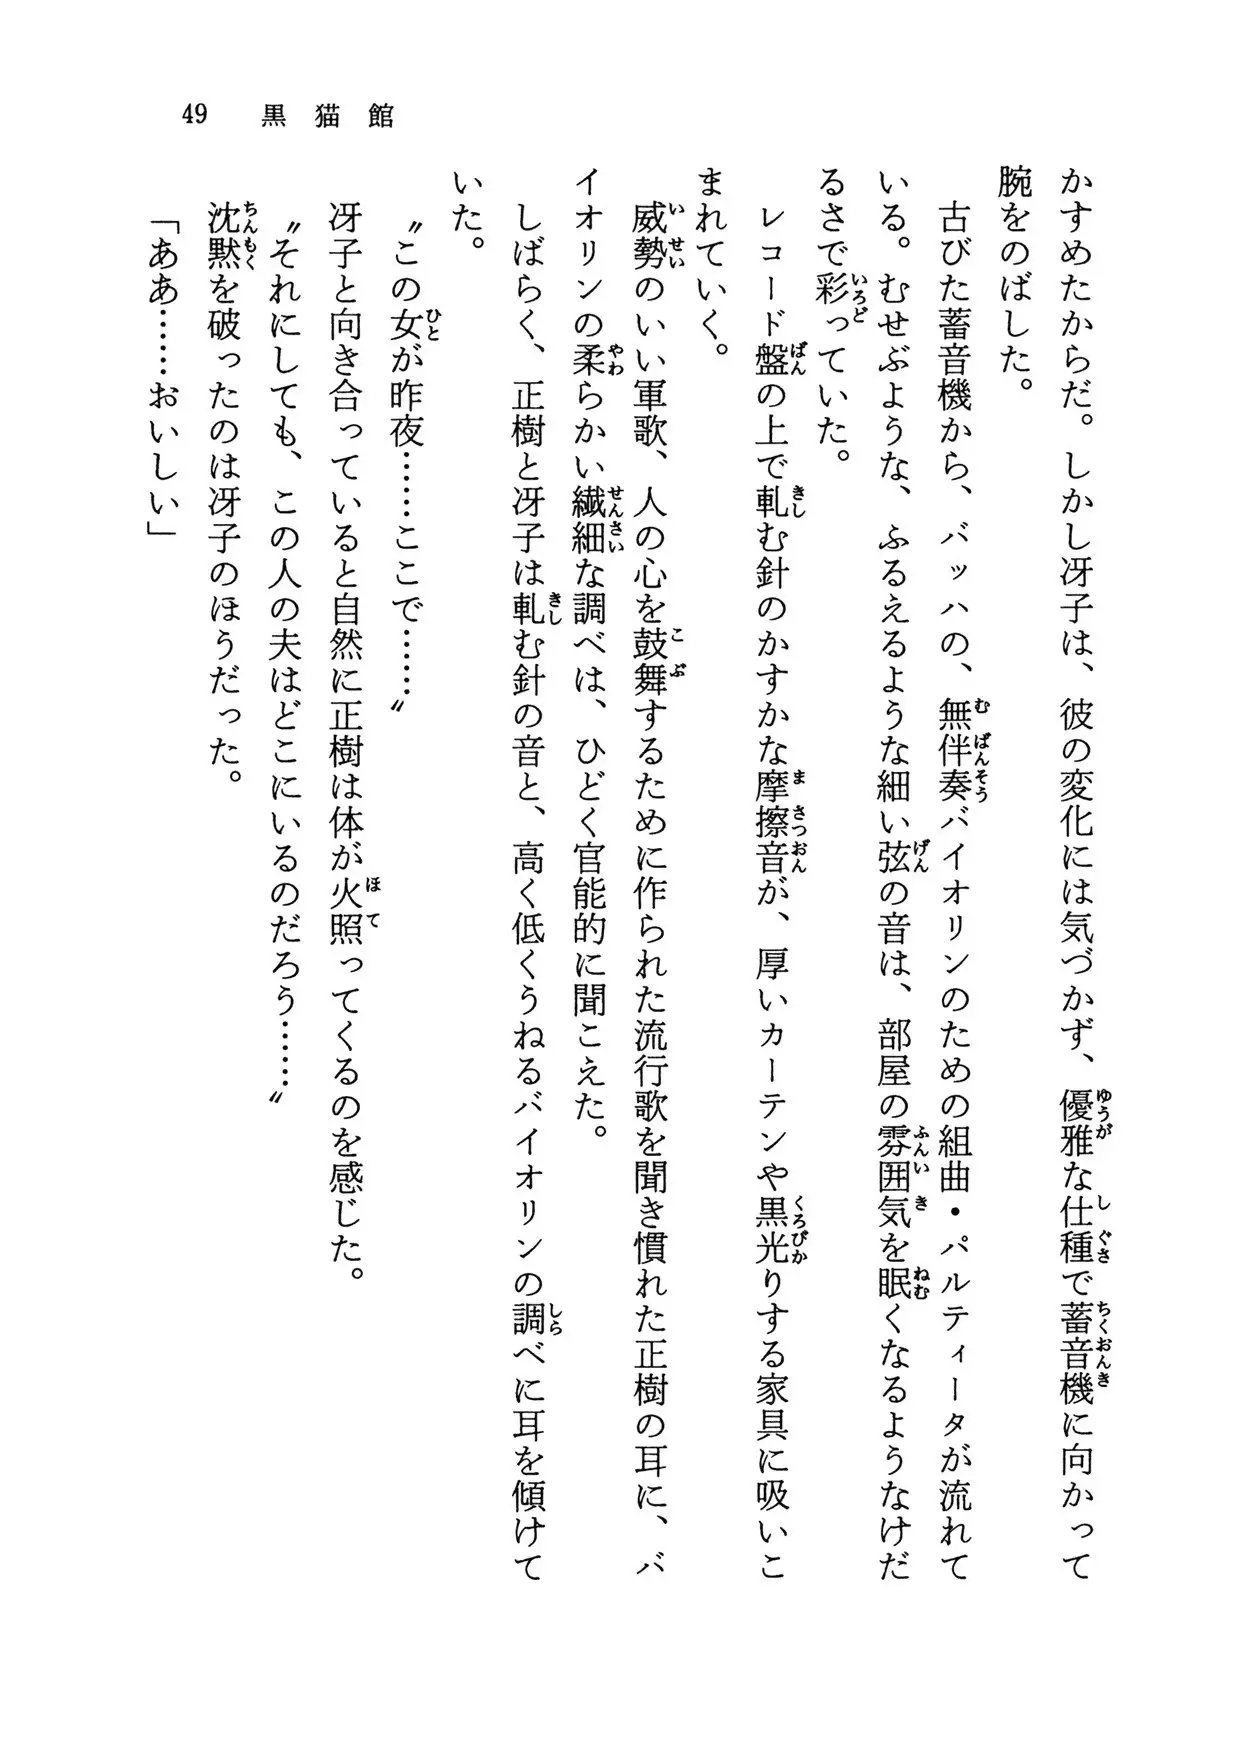 49 黒猫館
かすめたからだ。しかし冴子は、彼の変化には気づかず、優雅な仕種で蓄音機に向かって
腕をのばした。
古びた蓄音機から、バッハの、無伴奏バイオリンのための組曲・パルティータが流れて
いる。むせぶような、ふるえるような細い弦の音は、部屋の雰囲気を眠くなるようなけだ
るさで彩っていた。
レコード盤の上で軋む針のかすかな摩擦音が、厚いカーテンや黒光りする家具に吸いこ
まれていく。
威勢のいい軍歌、人の心を鼓舞するために作られた流行歌を聞き慣れた正樹の耳に、バ
イオリンの柔らかい繊細な調べは、ひどく官能的に聞こえた。
しばらく、正樹と冴子は軋む針の音と、高く低くうねるバイオリンの調べに耳を傾けて
いた。
〝この女が昨夜……ここで……〟
冴子と向き合っていると自然に正樹は体が火照ってくるのを感じた。
〝それにしても、この人の夫はどこにいるのだろう……〟
沈黙を破ったのは冴子のほうだった。
「ああ……おいしい」